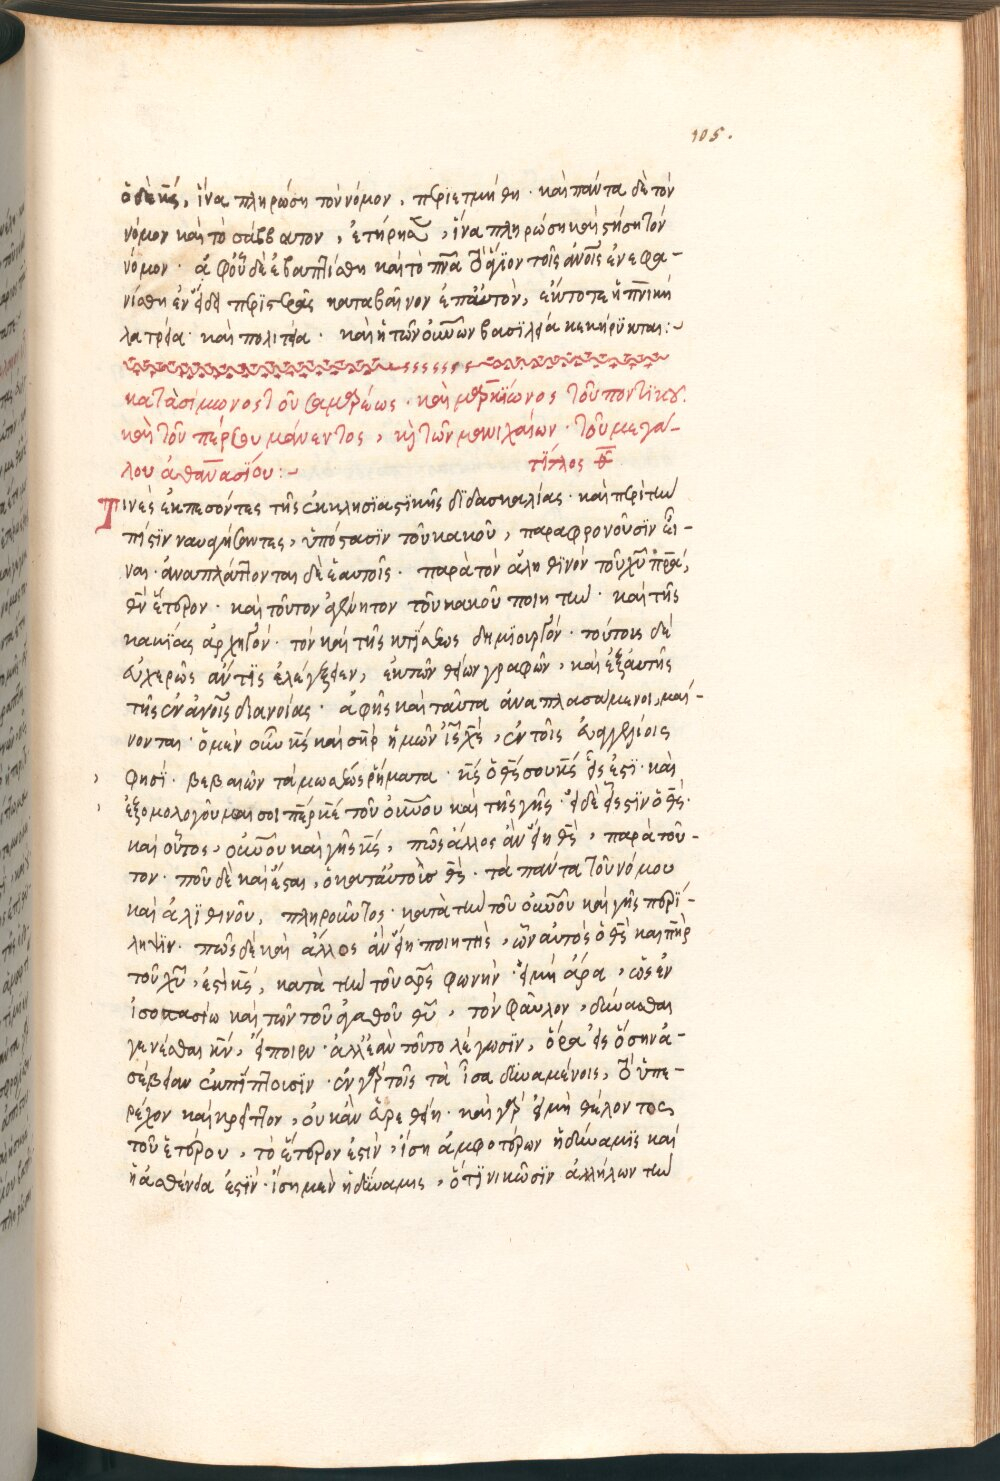 105.
ὁ δὲ κ̅ς, ἵνα πληρώση τὸν νόμον, περιετμήθη · καὶ πάντα δὲ τὸν
νόμον καὶ τὸ σάββατον, ἐτήρησεν, ἵνα πληρώση καὶ στήση τὸν
νόμον · ἀφ' οὗ δὲ ἐβαπτίσθη καὶ τὸ π̅ν̅α τὸ ἅγιον τοῖς ἀν̅οις ἐνεφα-
νίσθη ἐν εἴδει περιστερᾶς καταβαῖνον ἐπ' αὐτὸν, ἔκτοτε ἡ πν̅ικὴ
λατρεία καὶ πολιτεία · καὶ ἡ τῶν οὐν̅ῶν βασϊλεία κεκήρϋκται:~
κατὰ σίμωνος τοῦ σαμαρέως · καὶ μαρκϊωνος τοῦ ποντϊκοῦ.
καὶ τοῦ πέρσου μάνεντος, κὴ τῶν μανιχαίων · τοῦ μεγά-
λου ἀθανασϊου:~ τίτλος
Τινὲς ἐκπεσόντες τῆς ἐκκλησϊαστϊκῆς δϊδασκαλίας · καὶ περὶ τὴν
πίστϊν ναυαγήσαντες, ὑπόστασϊν τοῦ κακοῦ, παραφρονοῦσϊν εἶ-
ναι · ἀναπλάττονται δὲ ἑαυτοῖς · παρὰ τὸν ἀληθϊνὸν τοῦ χ̅υ π̅ρ̅α,
θ̅ν ἕτερον · καὶ τοῦτον ἀγένητον τοῦ κακοῦ ποιητὴν · καὶ τῆς
κακϊας ἀρχηγόν · τὸν καὶ τῆς κτϊσεως δημϊουργὸν · τούτους δὲ
εὐχερῶς ἄν τϊς ἐλέγξειεν, ἐκ τῶν θείων γραφῶν, καὶ ἐξ αὐτῆς
τῆς ἐν ἀν̅οις διανοίας · ἀφ' ἧς καὶ ταῦτα ἀναπλασάμενοι, μαί-
νονται · ὁ μὲν οὖν κ̅ς καὶ σ̅η̅ρ ἡμῶν ι̅ς χ̅ς, ἐν τοῖς εὐαγγελίοις
φησϊ · βεβαιῶν τὰ μωσέως ῥήματα · κ̅ς ὁ θ̅ς σου κ̅ς εἷς ἐστϊ · καὶ
ἐξομολογοῦμαι σοι π̅ε̅ρ κ̅ε τοῦ οὐν̅οῦ καὶ τῆς γῆς · εἰ δὲ εἷς ἐστϊν ὁ θ̅ς ·
καὶ οὗτος, οὐν̅οῦ καὶ γῆς κ̅ς, πῶς ἄλλος ἂν εἴη θ̅ς, παρὰ τοῦ-
τον · ποῦ δὲ καὶ ἔσται, ὁ κατ' αὐτοὺς θ̅ς · τὰ πάντα τοῦ νόμου
καὶ ἀλϊθινοῦ, πληροῦντος · κατὰ τὴν τοῦ οὐν̅οῦ καὶ γῆς περί-
ληψϊν · πῶς δὲ καὶ ἄλλος ἂν εἴη ποιητὴς, ὧν αὐτὸς ὁ θ̅ς καὶ π̅η̅ρ
τοῦ χ̅υ, ἐστὶ κ̅ς, κατὰ τὴν τοῦ σ̅ρ̅ς φωνὴν · εἰ μὴ ἄρα, ὡς ἐν
ἰσοστασίω καὶ τῶν τοῦ ἀγαθοῦ θ̅υ, τὸν φαῦλον, δύνασθαι
γενέσθαι κ̅ν, εἴποιεν · ἀλλ' ἐὰν τοῦτο λέγωσϊν, ὅρα εἰς ὅσην ἀ-
σέβειαν ἐκπίπτουσϊν · ἐν γὰρ τοῖς τὰ ἶσα δυναμένοις, τὸ ὑπε-
ρέχον καὶ κρεῖττον, οὐκ ἂν εὑρεθείη · καὶ γὰρ εἰ μὴ θέλοντος
τοῦ ἑτέρου, τὸ ἕτερόν ἐστιν, ἴση ἀμφοτέρων ἡ δύναμϊς καὶ
ἡ ἀσθένεια ἐστϊν · ἴση μὲν ἡ δύναμις, ὅτϊ νικῶσϊν ἀλλήλων τὴν